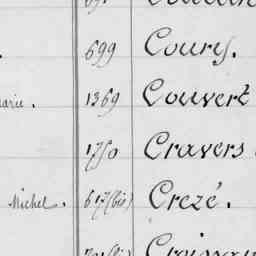 699 Coury.
1369 Couvert
1750 Cravers
Michel. 617 (bis) Crezé.